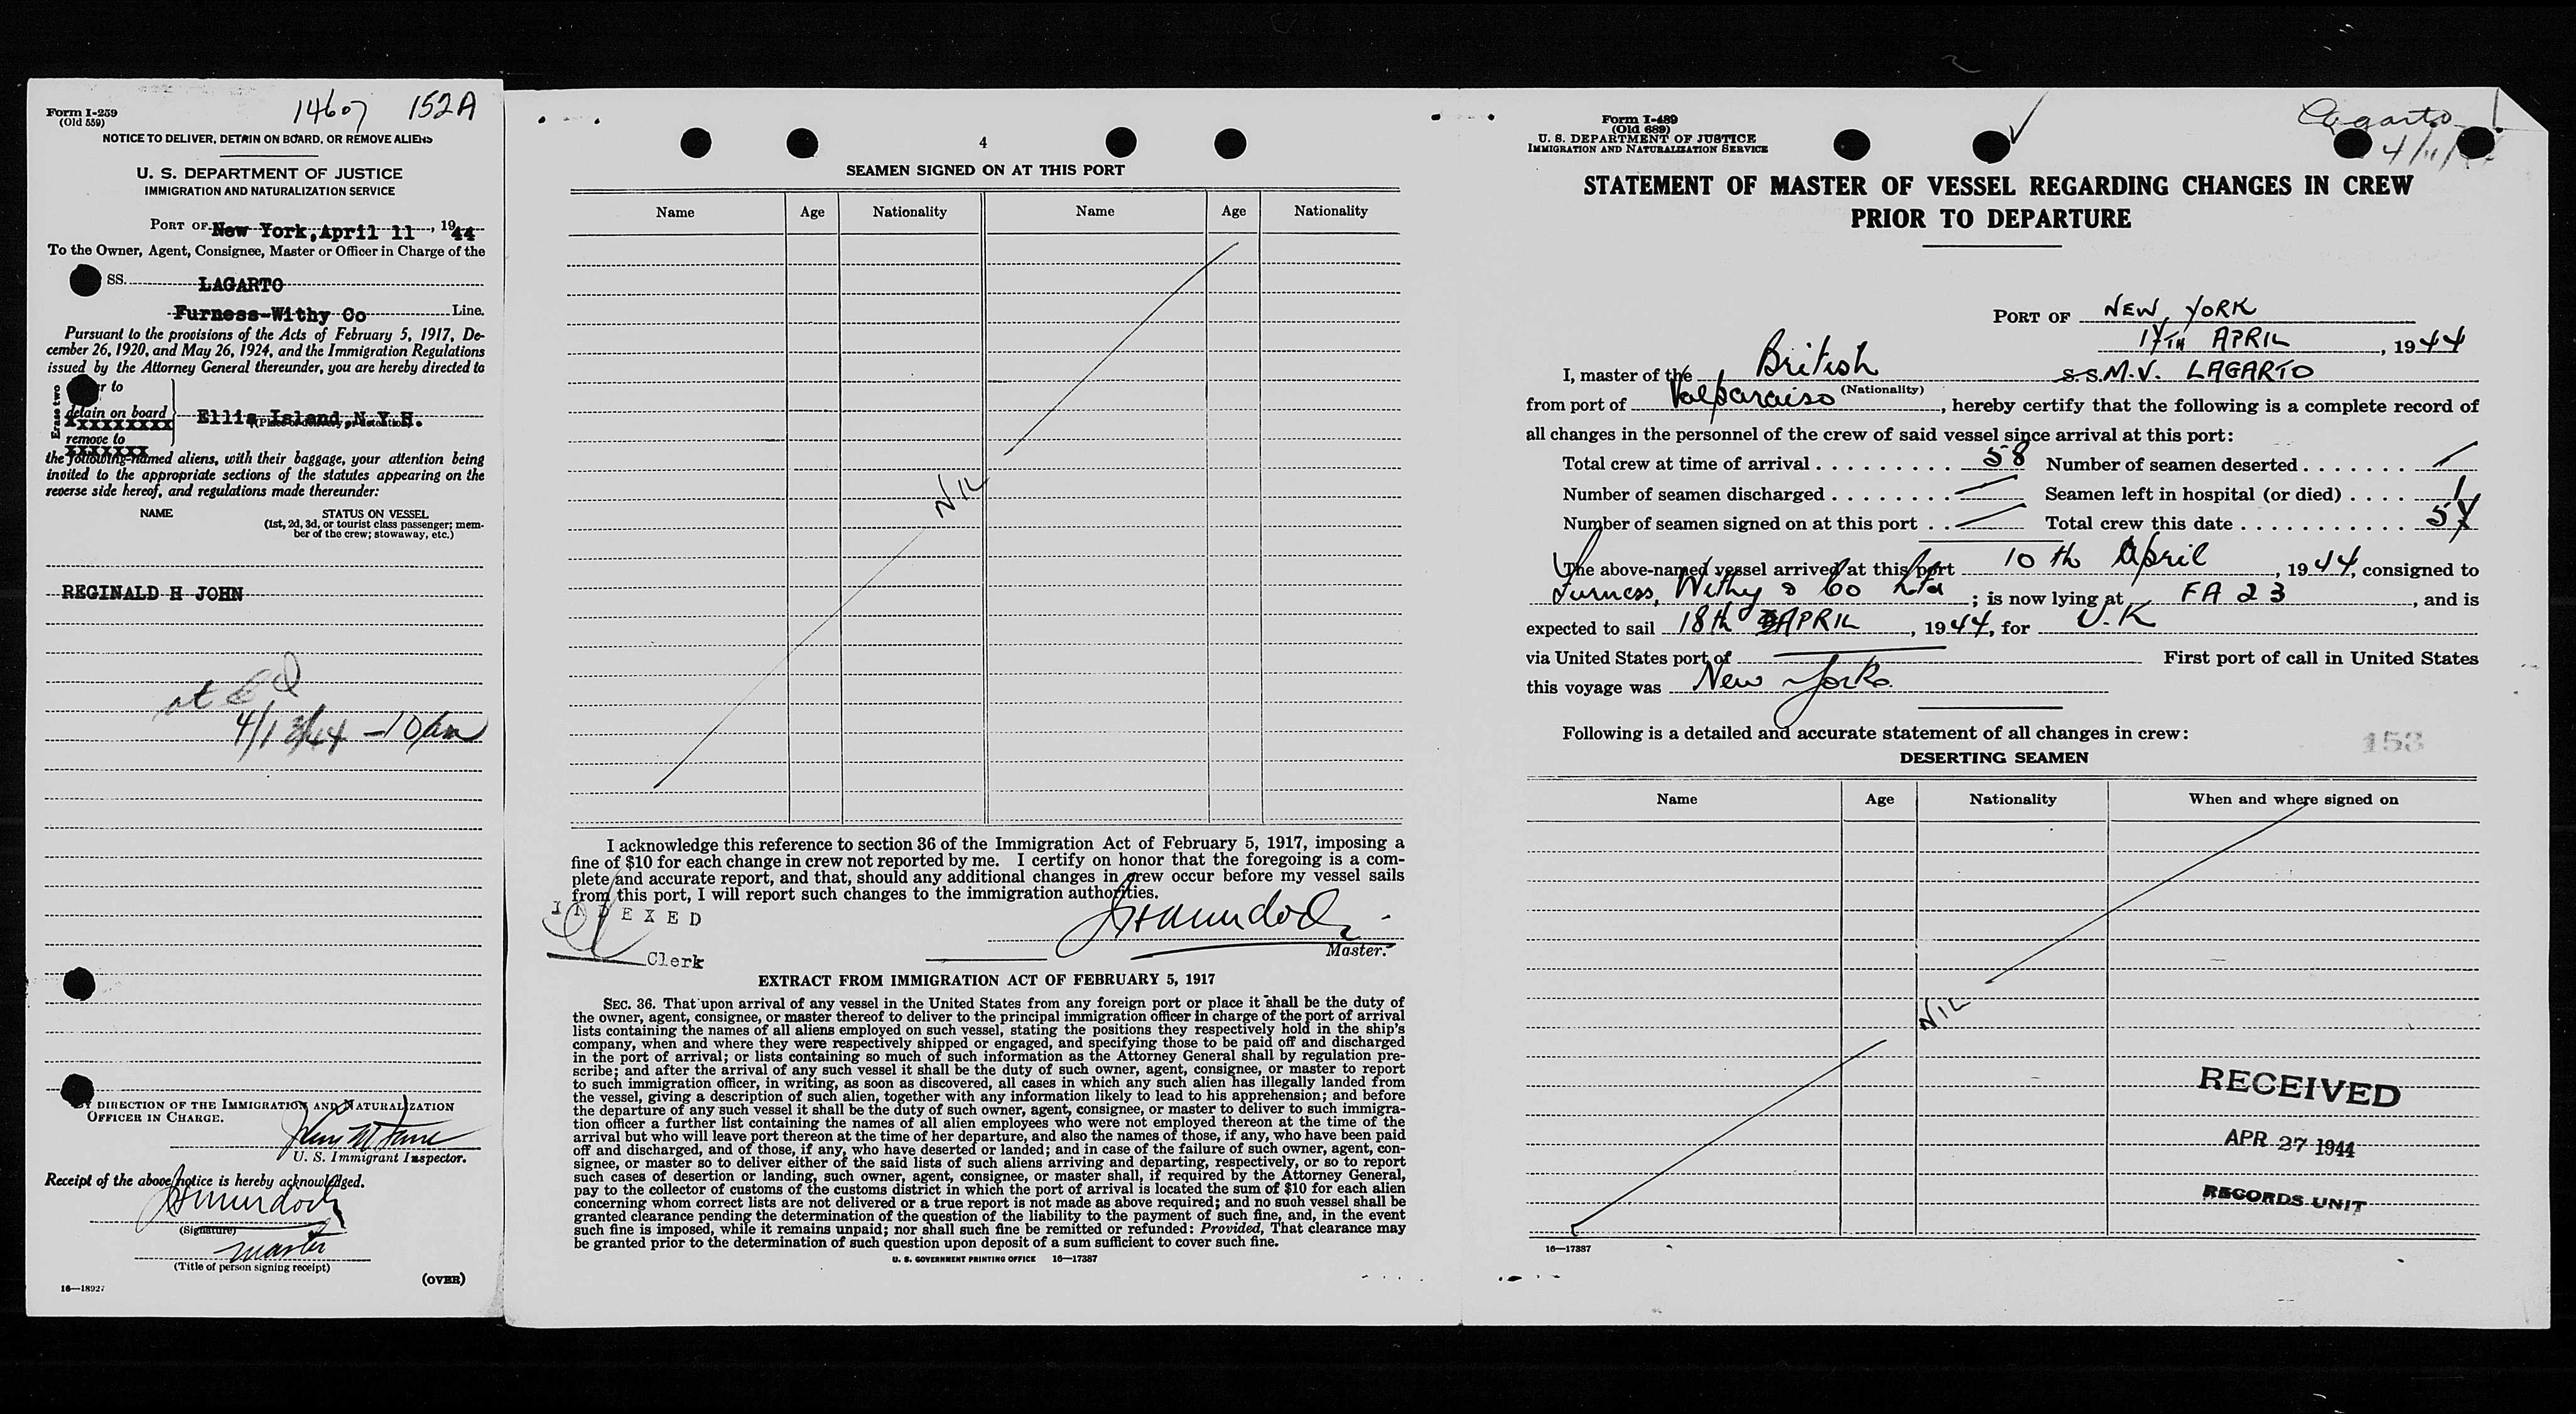 14607 152A
Form I-259
(Old 559)
NOTICE TO DELIVER, DETAIN ON BOARD, OR REMOVE ALIENS
U. S. DEPARTMENT OF JUSTICE
IMMIGRATION AND NATURALIZATION SERVICE
PORT OF New York, April 11, 1944
To the Owner, Agent, Consignee, Master or Officer in Charge of the
SS. LAGARTO
Furness-Withy Co Line.
Pursuant to the provisions of the Acts of February 5, 1917, De-
cember 26, 1920, and May 26, 1924, and the Immigration Regulations
issued by the Attorney General thereunder, you are hereby directed to
Erase two
r to
detain on board
xxxxxxxxx
Ellis Island, N.Y.H.
(Place of delivery or detention)
remove to
xxxxxxx
the following-named aliens, with their baggage, your attention being
invited to the appropriate sections of the statutes appearing on the
reverse side hereof, and regulations made thereunder:
NAME STATUS ON VESSEL
(1st, 2d, 3d, or tourist class passenger; mem-
ber of the crew; stowaway, etc.)
REGINALD H JOHN
at
4/13/44 - 10 am
BY DIRECTION OF THE IMMIGRATION AND NATURALIZATION
OFFICER IN CHARGE.
U. S. Immigrant Inspector.
Receipt of the above notice is hereby acknowledged.
JHMurdoch
(Signature)
Master
(Title of person signing receipt)
16—18927 (OVER)
4
SEAMEN SIGNED ON AT THIS PORT
Name Age Nationality Name Age Nationality
NIL
I acknowledge this reference to section 36 of the Immigration Act of February 5, 1917, imposing a
fine of $10 for each change in crew not reported by me. I certify on honor that the foregoing is a com-
plete and accurate report, and that, should any additional changes in crew occur before my vessel sails
from this port, I will report such changes to the immigration authorities.
INDEXED
JHMurdoch
Clerk
Master.
EXTRACT FROM IMMIGRATION ACT OF FEBRUARY 5, 1917
SEC. 36. That upon arrival of any vessel in the United States from any foreign port or place it shall be the duty of
the owner, agent, consignee, or master thereof to deliver to the principal immigration officer in charge of the port of arrival
lists containing the names of all aliens employed on such vessel, stating the positions they respectively hold in the ship's
company, when and where they were respectively shipped or engaged, and specifying those to be paid off and discharged
in the port of arrival; or lists containing so much of such information as the Attorney General shall by regulation pre-
scribe; and after the arrival of any such vessel it shall be the duty of such owner, agent, consignee, or master to report
to such immigration officer, in writing, as soon as discovered, all cases in which any such alien has illegally landed from
the vessel, giving a description of such alien, together with any information likely to lead to his apprehension; and before
the departure of any such vessel it shall be the duty of such owner, agent, consignee, or master to deliver to such immigra-
tion officer a further list containing the names of all alien employees who were not employed thereon at the time of the
arrival but who will leave port thereon at the time of her departure, and also the names of those, if any, who have been paid
off and discharged, and of those, if any, who have deserted or landed; and in case of the failure of such owner, agent, con-
signee, or master so to deliver either of the said lists of such aliens arriving and departing, respectively, or so to report
such cases of desertion or landing, such owner, agent, consignee, or master shall, if required by the Attorney General,
pay to the collector of customs of the customs district in which the port of arrival is located the sum of $10 for each alien
concerning whom correct lists are not delivered or a true report is not made as above required; and no such vessel shall be
granted clearance pending the determination of the question of the liability to the payment of such fine, and, in the event
such fine is imposed, while it remains unpaid; nor shall such fine be remitted or refunded: Provided, That clearance may
be granted prior to the determination of such question upon deposit of a sum sufficient to cover such fine.
U. S. GOVERNMENT PRINTING OFFICE 16—17387
Form I-489
(Old 689)
U. S. DEPARTMENT OF JUSTICE
IMMIGRATION AND NATURALIZATION SERVICE
Lagarto
4/11/
STATEMENT OF MASTER OF VESSEL REGARDING CHANGES IN CREW
PRIOR TO DEPARTURE
PORT OF NEW YORK
17TH APRIL, 1944
I, master of the British S.S. M.V. LAGARTO
(Nationality)
from port of Valparaiso, hereby certify that the following is a complete record of
all changes in the personnel of the crew of said vessel since arrival at this port:
Total crew at time of arrival 58 Number of seamen deserted /
Number of seamen discharged / Seamen left in hospital (or died) 1
Number of seamen signed on at this port / Total crew this date 57
The above-named vessel arrived at this port 10th April, 1944, consigned to
Furness, Withy & Co Ltd; is now lying at FA 23, and is
expected to sail 18th APRIL, 1944, for U.K
via United States port of — First port of call in United States
this voyage was New York
Following is a detailed and accurate statement of all changes in crew:
153
DESERTING SEAMEN
Name Age Nationality When and where signed on
NIL
RECEIVED
APR 27 1944
RECORDS UNIT
16—17387